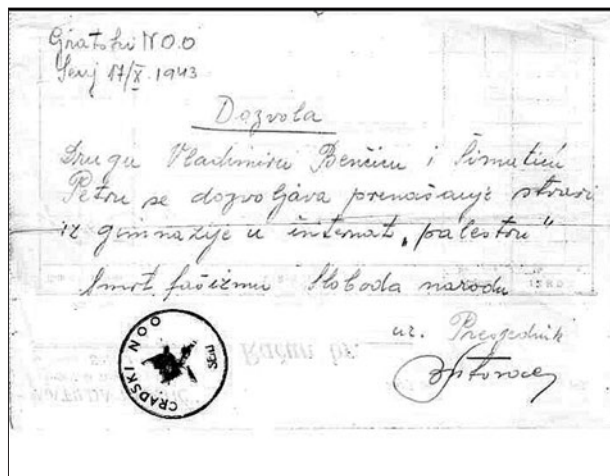 Gratski N.O.O
Senj 17/X. 1943
Dozvola
Drugu Vladimiru Benčiću i Šimatiću
Petru se dozvoljava prenašanje stvari
iz gimnazije u internat „palestru"
Smrt fašizmu Sloboda narodu
uz. Presjednik
GRADSKI NOO
Senj
Račun br.